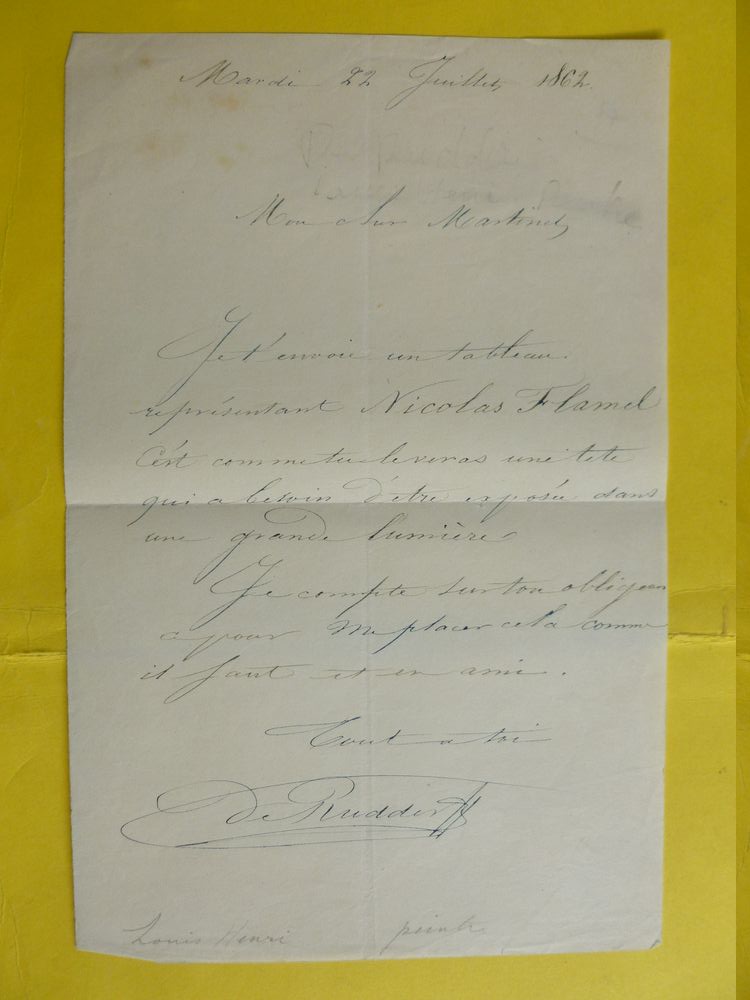 Mardi 22 Juillet 1862.
Mon cher Martinet,
Je t'envoie un tableau
représentant Nicolas Flamel
C'est comme tu le veras une tete
qui a besoin d'etre exposée dans
une grande lumière
Je compte sur ton obligean
ce pour me placer cela comme
il faut et en ami.
Tout a toi
De Rudder
Louis Henri peintre